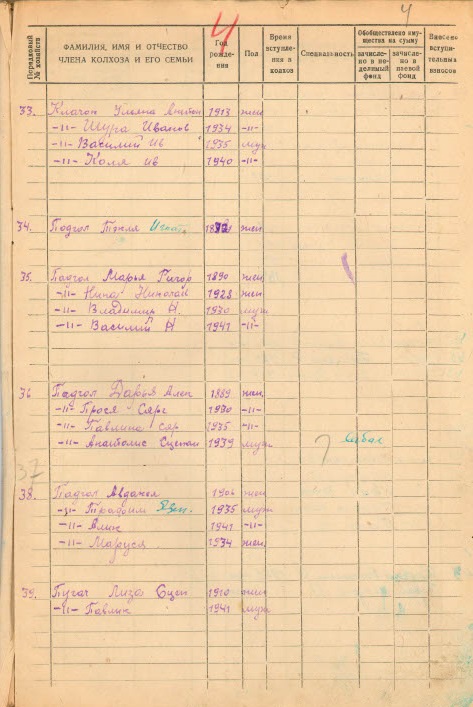 4 4
Порядковый № хозяйств
ФАМИЛИЯ, ИМЯ И ОТЧЕСТВО ЧЛЕНА КОЛХОЗА И ЕГО СЕМЬИ
Год рождения
Пол
Время вступления в колхоз
Специальность
Обобществлено имущества на сумму
зачислено в неделимый фонд
зачислено в паевой фонд
Внесено вступительных взносов
33. Клачок Ульяна 1913 жен
-"- Шура Иванов 1934 -"-
-"- Василий Ив 1935 муж
-"- Коля Ив 1940 -"-
34. Подгол Тэкля Игнат. жен
35. Падгол Марья Рыгор 1890 жен
-"- Нина Николай 1928 жен
-"- Владимир Н. 1930 муж
-"- Василий Н 1941 -"-
36 Падгол Дарья Алек 1889 жен
-"- Прося Сярг 1930 -"-
-"- Павлина Сяр 1935 -"-
-"- Анатолис Сцепан 1939 муж
37
38. Падгол Авдакея 1906 жен
-"- Трафим 1935 муж
-"- 1941 -"-
-"- Маруся 1934 жен
39. Пугач Лизов Сцеп 1910 жен
-"- Павлик 1941 муж